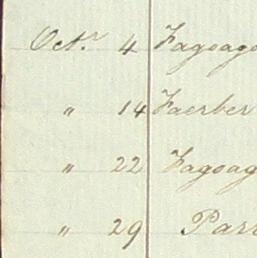 Octr 4 Fagoago
" 14 Faerber
" 22 Fagoag
" 29 Parr